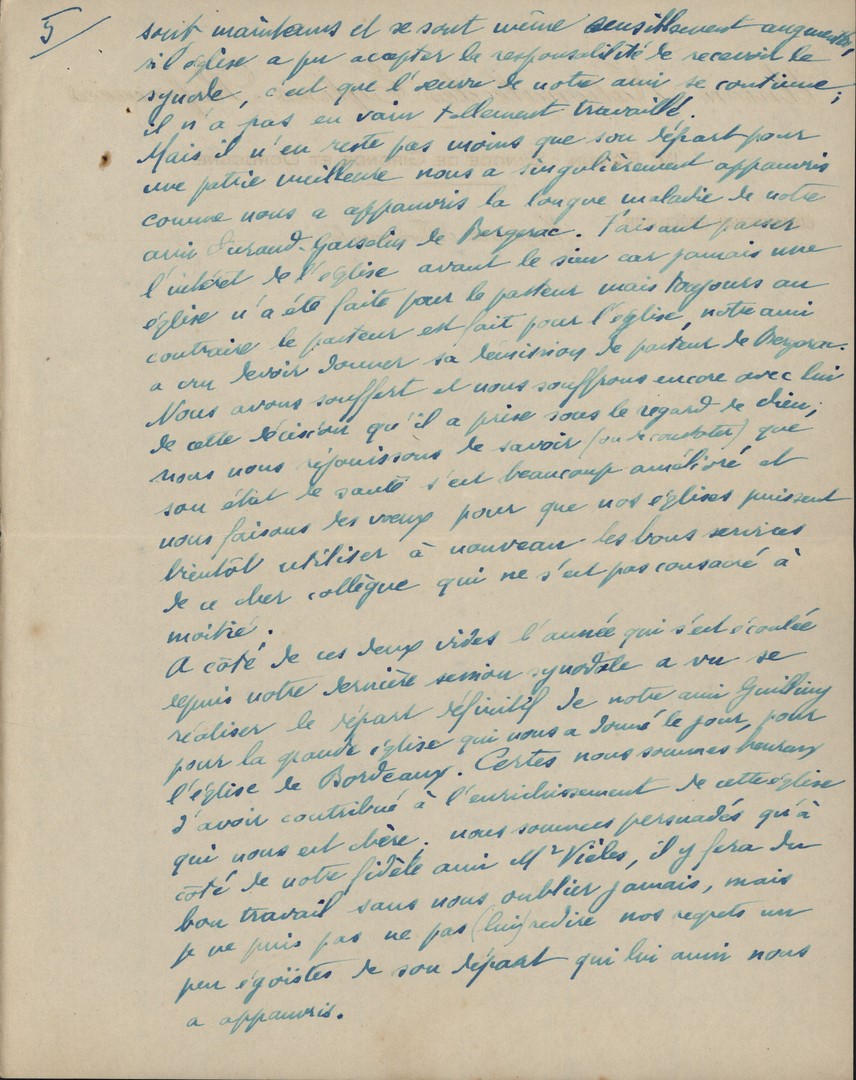 5
sont maintenus et se sont même sensiblement augmentés,
si l'église a pu accepter la responsabilité de recevoir le
synode, c'est que l'œuvre de notre ami se continue;
il n'a pas en vain tellement travaillé.
Mais il n'en reste pas moins que son départ pour
une patrie meilleure nous a singulièrement appauvris
comme nous a appauvris la longue maladie de notre
ami Durand-Gasselin de Bergerac. Faisant passer
l'intérêt de l'église avant le sien car jamais une
église n'a été faite pour le pasteur mais toujours au
contraire le pasteur est fait pour l'église, notre ami
a cru devoir donner sa démission de pasteur de Bergerac.
Nous avons souffert et nous souffrons encore avec lui
de cette décision qu'il a prise sous le regard de Dieu;
nous nous réjouissons de savoir (ou de constater) que
son état de santé s'est beaucoup amélioré et
nous faisons des vœux pour que nos églises puissent
bientôt utiliser à nouveau les bons services
de ce cher collègue qui ne s'est pas consacré à
moitié.
A côté de ces deux vides l'année qui s'est écoulée
depuis notre dernière session synodale a vu se
réaliser le départ définitif de notre ami
pour la grande église qui nous a donné le jour, pour
l'église de Bordeaux. Certes nous sommes heureux
d'avoir contribué à l'enrichissement de cette église
qui nous est chère; nous sommes persuadés qu'à
côté de notre fidèle ami Mr Vièles, il y fera du
bon travail sans nous oublier jamais, mais
je ne puis pas ne pas (lui) redire nos regrets un
peu égoïstes de son départ qui lui aussi nous
a appauvris.